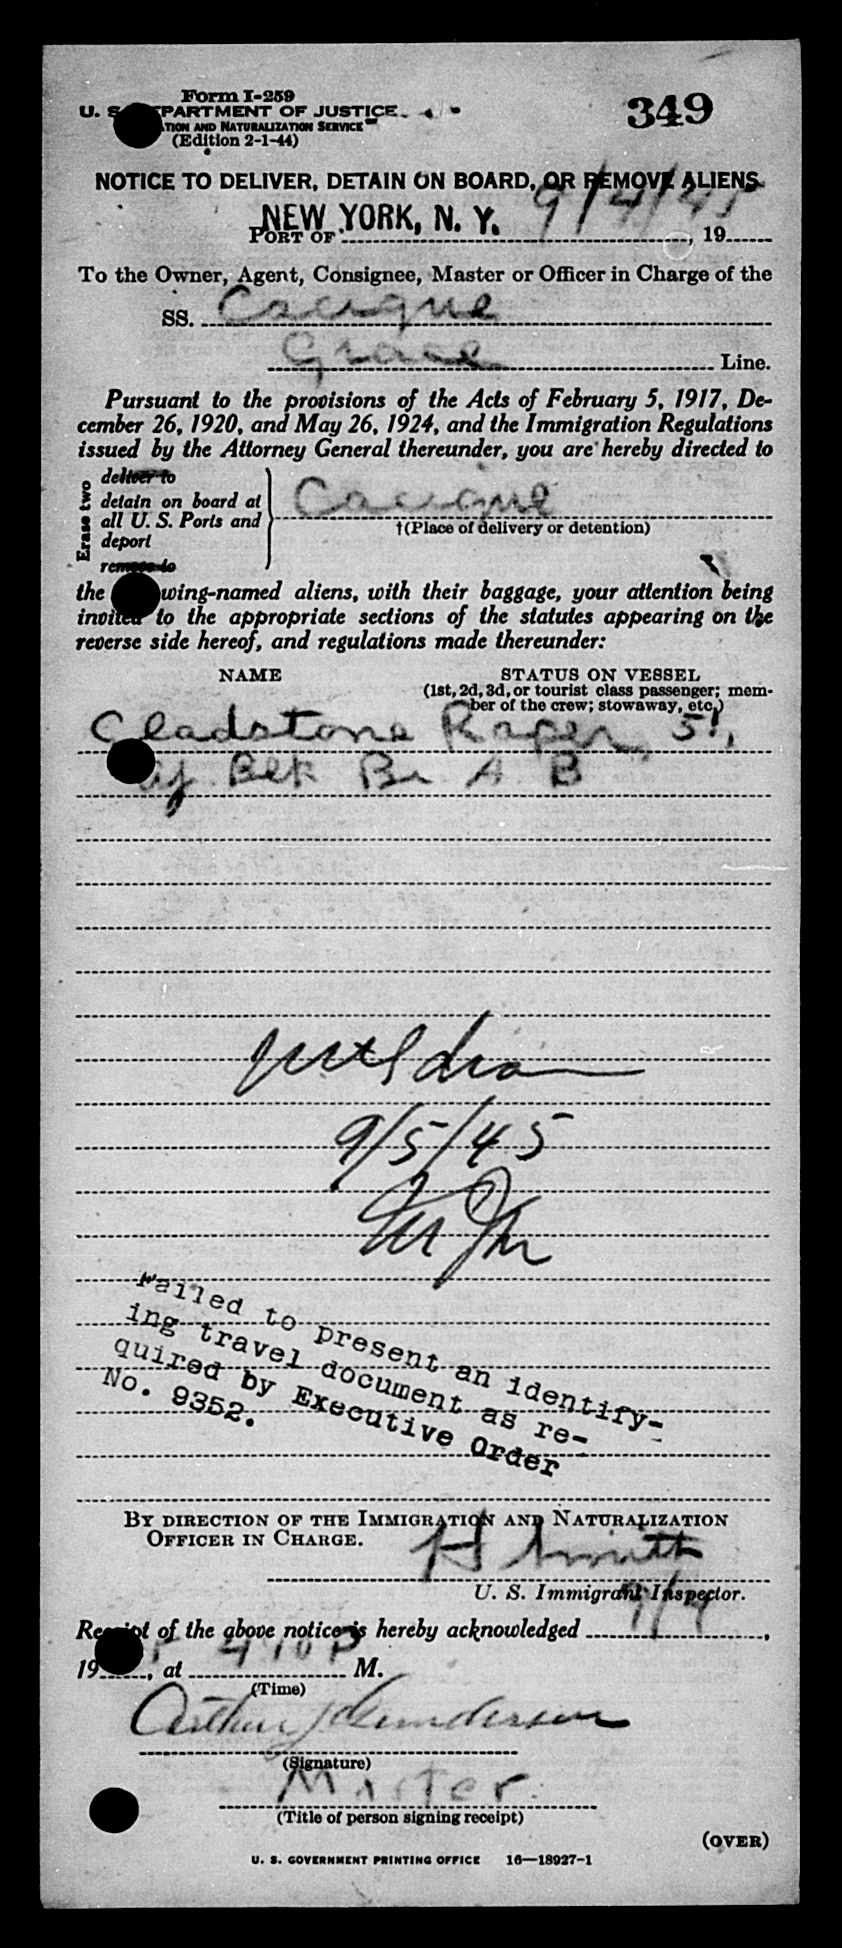 Form I-259
349
U. S. DEPARTMENT OF JUSTICE
TION AND NATURALIZATION SERVICE
(Edition 2-1-44)
NOTICE TO DELIVER, DETAIN ON BOARD, OR REMOVE ALIENS
NEW YORK, N. Y. 9/4/45
PORT OF , 19
To the Owner, Agent, Consignee, Master or Officer in Charge of the
SS. Cacique
Grace Line.
Pursuant to the provisions of the Acts of February 5, 1917, De-
cember 26, 1920, and May 26, 1924, and the Immigration Regulations
issued by the Attorney General thereunder, you are hereby directed to
Erase two
deliver to
detain on board at
all U. S. Ports and
deport
remove to
Cacique
†(Place of delivery or detention)
the wing-named aliens, with their baggage, your attention being
invited to the appropriate sections of the statutes appearing on the
reverse side hereof, and regulations made thereunder:
NAME STATUS ON VESSEL
(1st, 2d, 3d, or tourist class passenger; mem-
ber of the crew; stowaway, etc.)
Gladstone Raper, 51,
Blk Br A B
9/5/45
Failed to present an identify-
ing travel document as re-
quired by Executive Order
No. 9352.
BY DIRECTION OF THE IMMIGRATION AND NATURALIZATION
OFFICER IN CHARGE.
H Smith
U. S. Immigrant Inspector.
Receipt of the above notice is hereby acknowledged 9/4,
19 5, at 4 10 P M.
(Time)
Arthur J Gunderson
(Signature)
Master
(Title of person signing receipt)
(OVER)
U. S. GOVERNMENT PRINTING OFFICE 16—18927-1